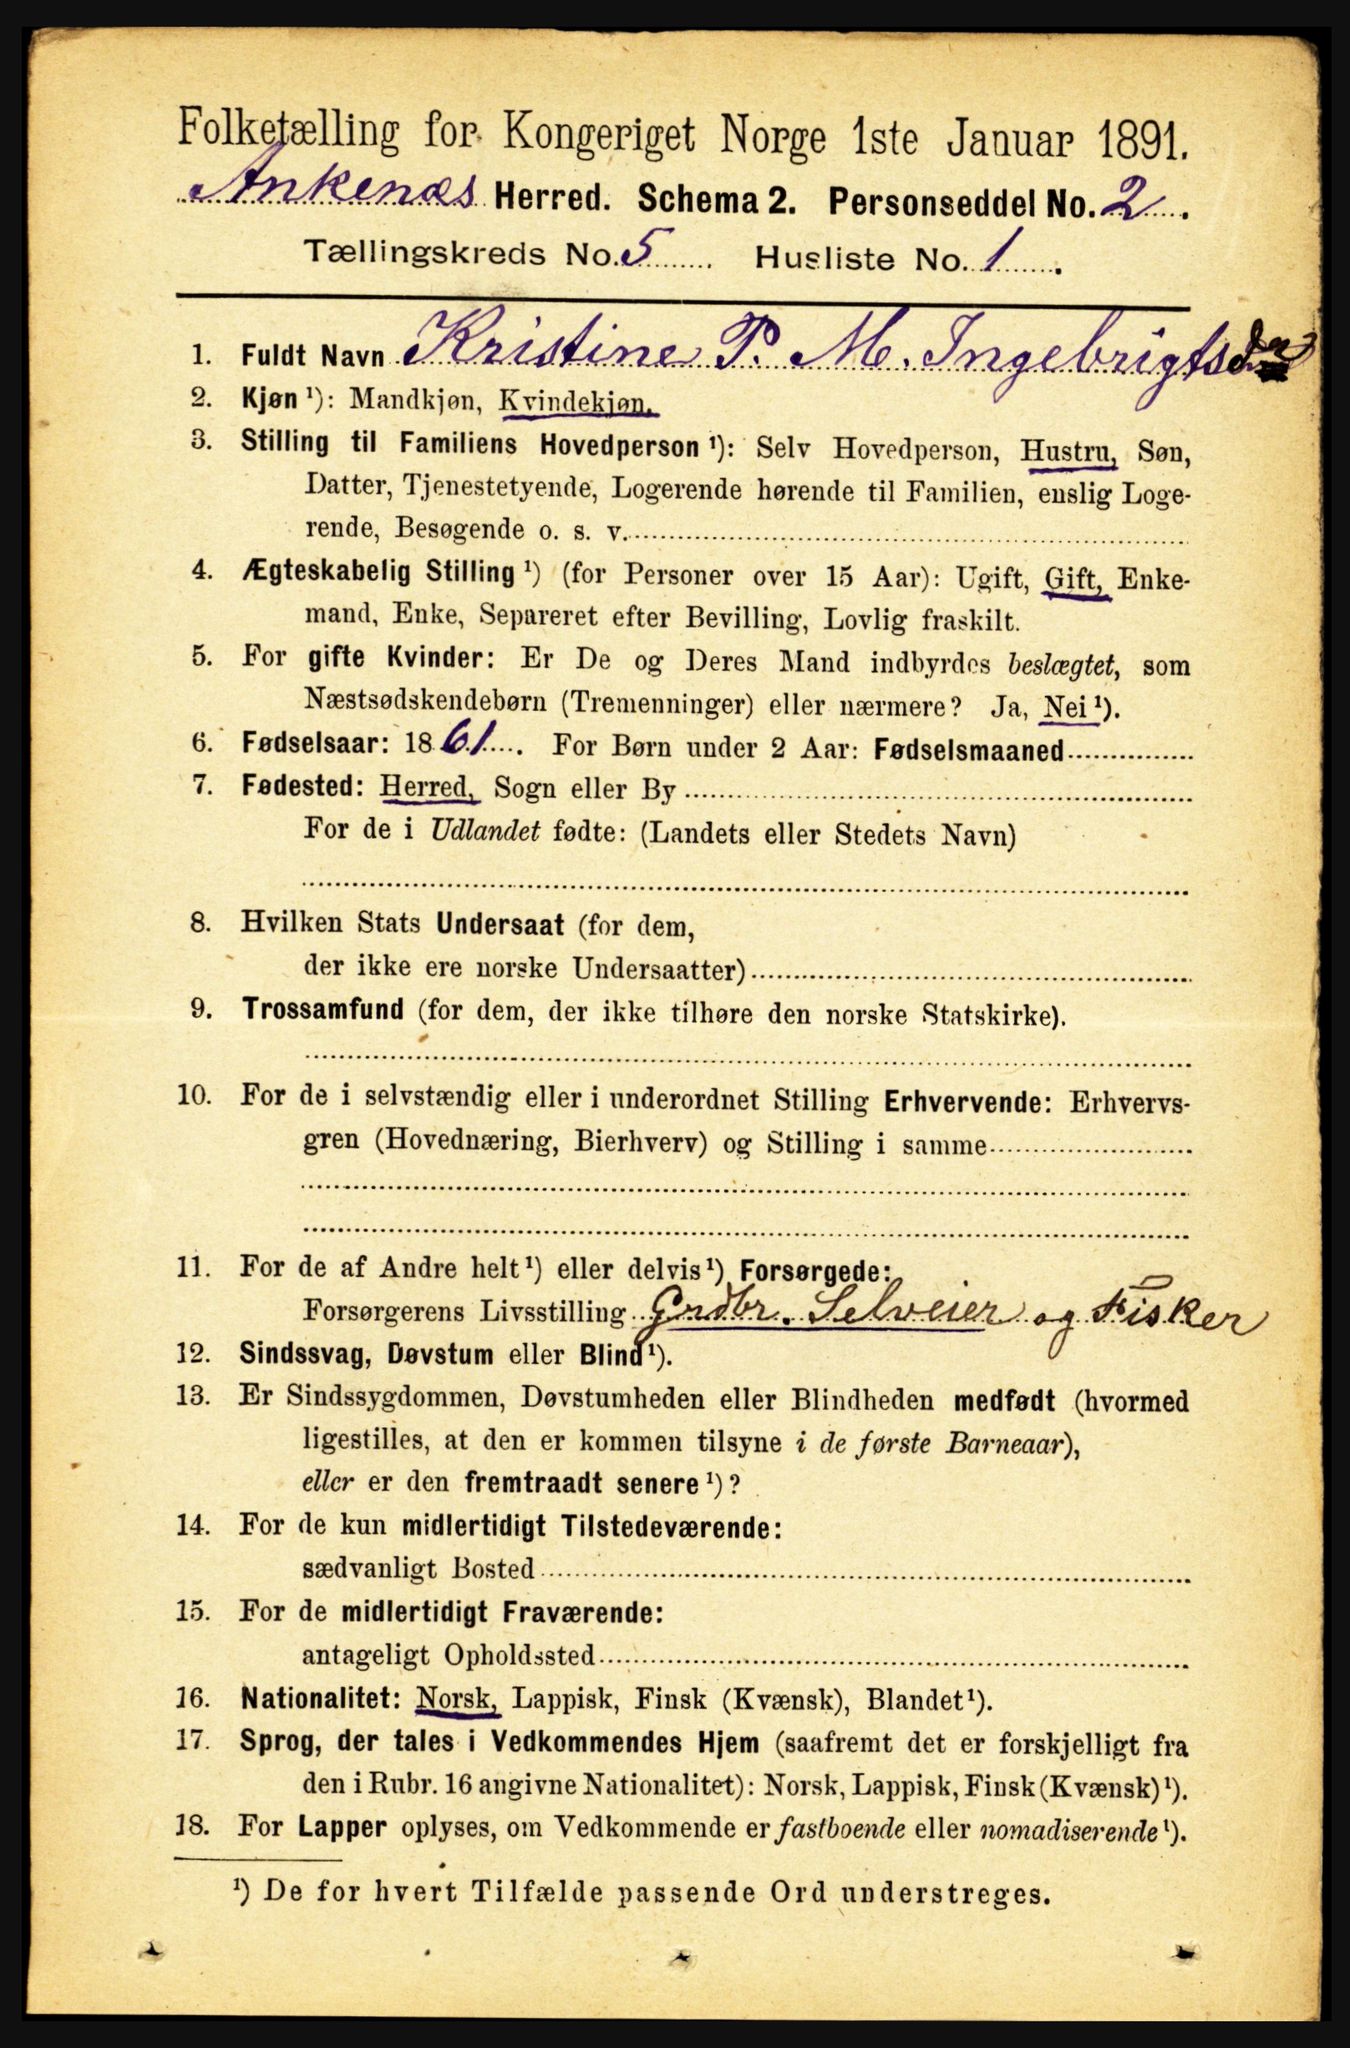 Folketælling for Kongeriget Norge 1ste Januar 1891.
Ankenæs Herred. Schema 2. Personseddel No. 2.
Tællingskreds No. 5. Husliste No. 1.
1. Fuldt Navn Kristine P. M. Ingebrigtsdr
2. Kjøn ¹): Mandkjøn, Kvindekjøn.
3. Stilling til Familiens Hovedperson ¹): Selv Hovedperson, Hustru, Søn,
Datter, Tjenestetyende, Logerende hørende til Familien, enslig Loge-
rende, Besøgende o. s. v.
4. Ægteskabelig Stilling ¹) (for Personer over 15 Aar): Ugift, Gift, Enke-
mand, Enke, Separeret efter Bevilling, Lovlig fraskilt.
5. For gifte Kvinder: Er De og Deres Mand indbyrdes beslægtet, som
Næstsødskendebørn (Tremenninger) eller nærmere? Ja, Nei ¹).
6. Fødselsaar: 1861. For Børn under 2 Aar: Fødselsmaaned
7. Fødested: Herred, Sogn eller By
For de i Udlandet fødte: (Landets eller Stedets Navn)
8. Hvilken Stats Undersaat (for dem,
der ikke ere norske Undersaatter)
9. Trossamfund (for dem, der ikke tilhøre den norske Statskirke).
10. For de i selvstændig eller i underordnet Stilling Erhvervende: Erhvervs-
gren (Hovednæring, Bierhverv) og Stilling i samme
11. For de af Andre helt ¹) eller delvis ¹) Forsørgede:
Forsørgerens Livsstilling Grdbr. Selveier og Fisker
12. Sindssvag, Døvstum eller Blind ¹).
13. Er Sindssygdommen, Døvstumheden eller Blindheden medfødt (hvormed
ligestilles, at den er kommen tilsyne i de første Barneaar),
eller er den fremtraadt senere ¹)?
14. For de kun midlertidigt Tilstedeværende:
sædvanligt Bosted
15. For de midlertidigt Fraværende:
antageligt Opholdssted
16. Nationalitet: Norsk, Lappisk, Finsk (Kvænsk), Blandet ¹).
17. Sprog, der tales i Vedkommendes Hjem (saafremt det er forskjelligt fra
den i Rubr. 16 angivne Nationalitet): Norsk, Lappisk, Finsk (Kvænsk) ¹).
18. For Lapper oplyses, om Vedkommende er fastboende eller nomadiserende ¹).
¹) De for hvert Tilfælde passende Ord understreges.